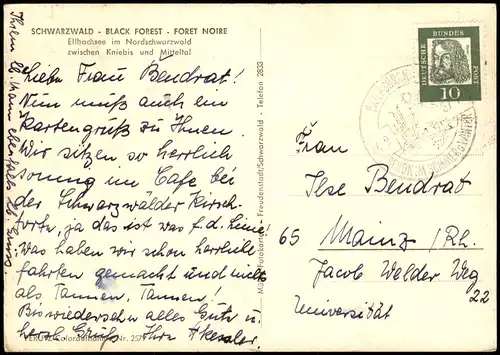 SCHWARZWALD - BLACK FOREST - FORET NOIRE
Ellbachsee im Nordschwarzwald
zwischen Kniebis und Mitteltal
Liebe Frau Bendrat!
Nun muß auch ein
Kartengruß zu Ihnen.
Wir sitzen so herrlich
sonnig im Cafe bei
der Schwarzwälder Kirsch-
torte, ja das ist was f. d. Leine!
Was haben wir schon herrliche
fahrten gemacht und nichts
als Tannen, Tannen!
Bis wiedersehn alles Gute u.
herzl. Grüße Ihre Kessler
Ihrem lb. Mann ebenfalls lb. Gruss
Fotokarte Freudenstadt/Schwarzwald - Telefon 2833
Nr. 257
DEUTSCHE BUNDESPOST
10
Frau
Ilse Bendrat
65 Mainz/Rh.
Jacob Welder Weg
22
Universität